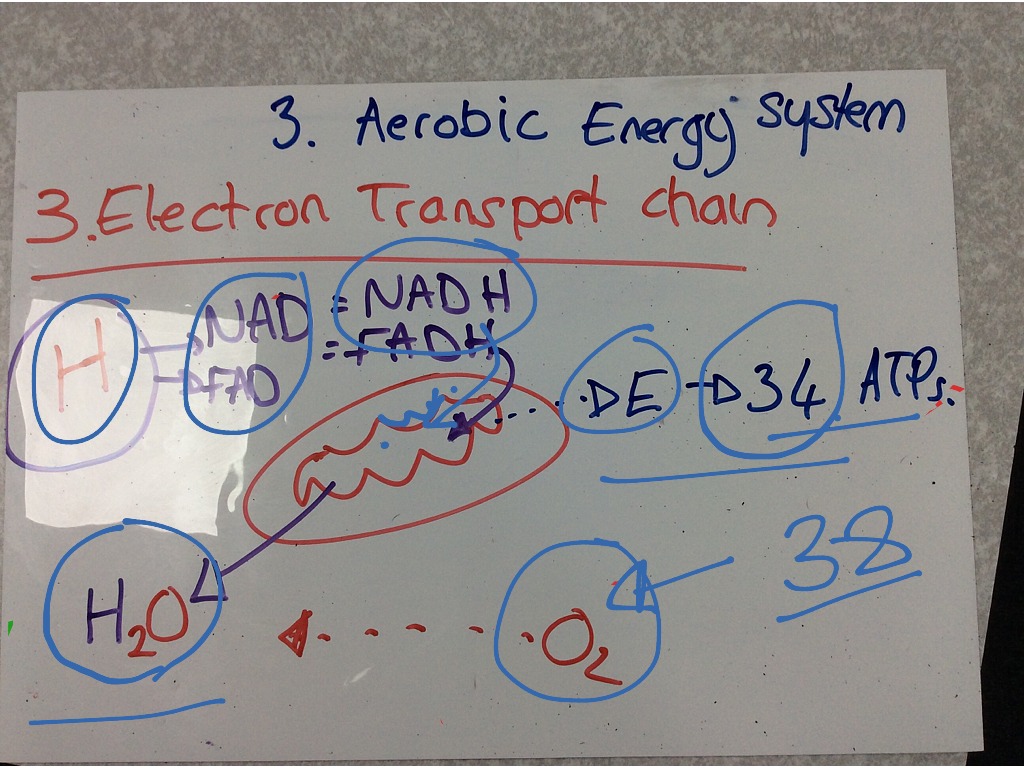 3. Aerobic Energy System
3. Electron Transport chain
H NAD = NADH
FAD = FADH
E 34 ATPs.
38
H2O O2